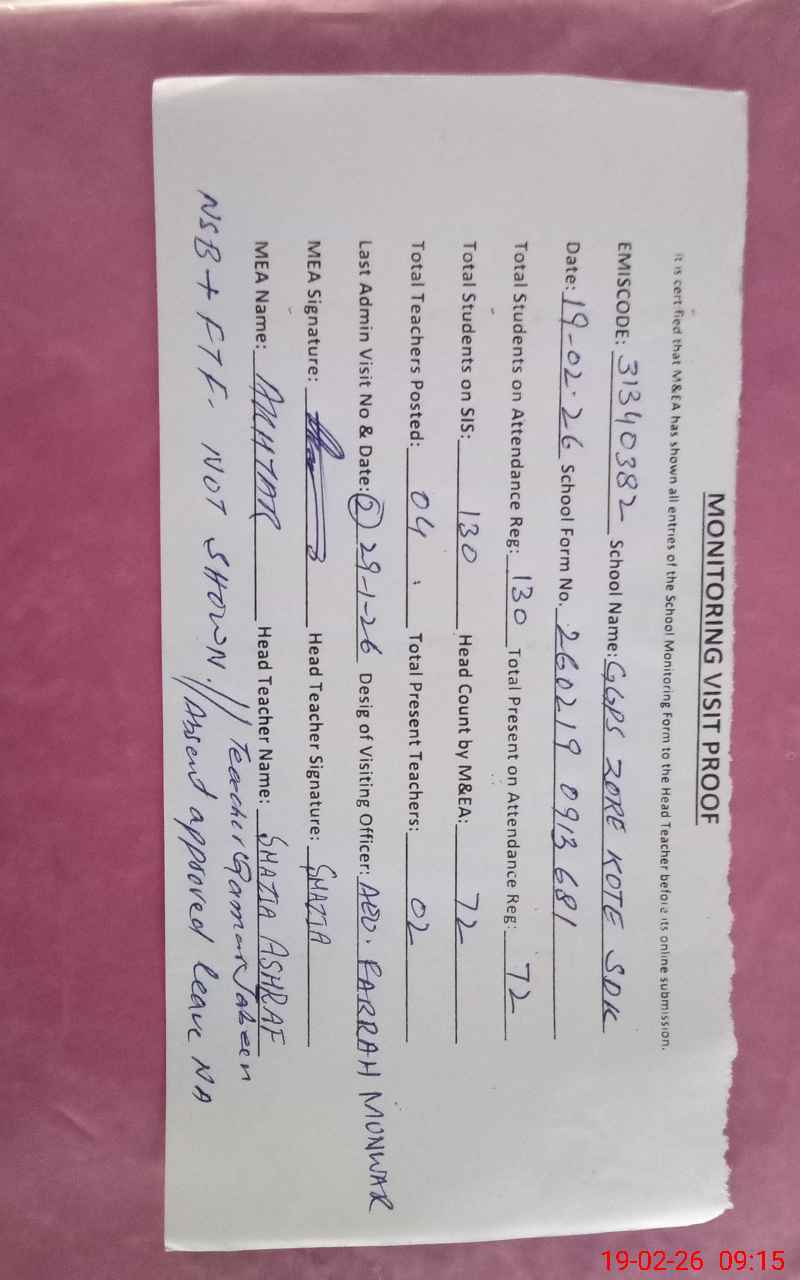 MONITORING VISIT PROOF
It is certified that M&EA has shown all entries of the School Monitoring Form to the Head Teacher before its online submission.
EMISCODE: 31340382 School Name: GGPS ZORE KOTE SDK
Date: 19-02-26 School Form No. 260219 0913 681
Total Students on Attendance Reg: 130 Total Present on Attendance Reg: 72
Total Students on SIS: 130 Head Count by M&EA: 72
Total Teachers Posted: 04 Total Present Teachers: 02
Last Admin Visit No & Date: 2 29-1-26 Desig of Visiting Officer: AEO. FARRAH MONWAR
MEA Signature: Head Teacher Signature: SHAZIA
MEA Name: AKHTAR Head Teacher Name: SHAZIA ASHRAF
NSB + FTF. NOT SHOWN. // Teacher Qamar Jabeen
// Absent approved leave NA
19-02-26 09:15